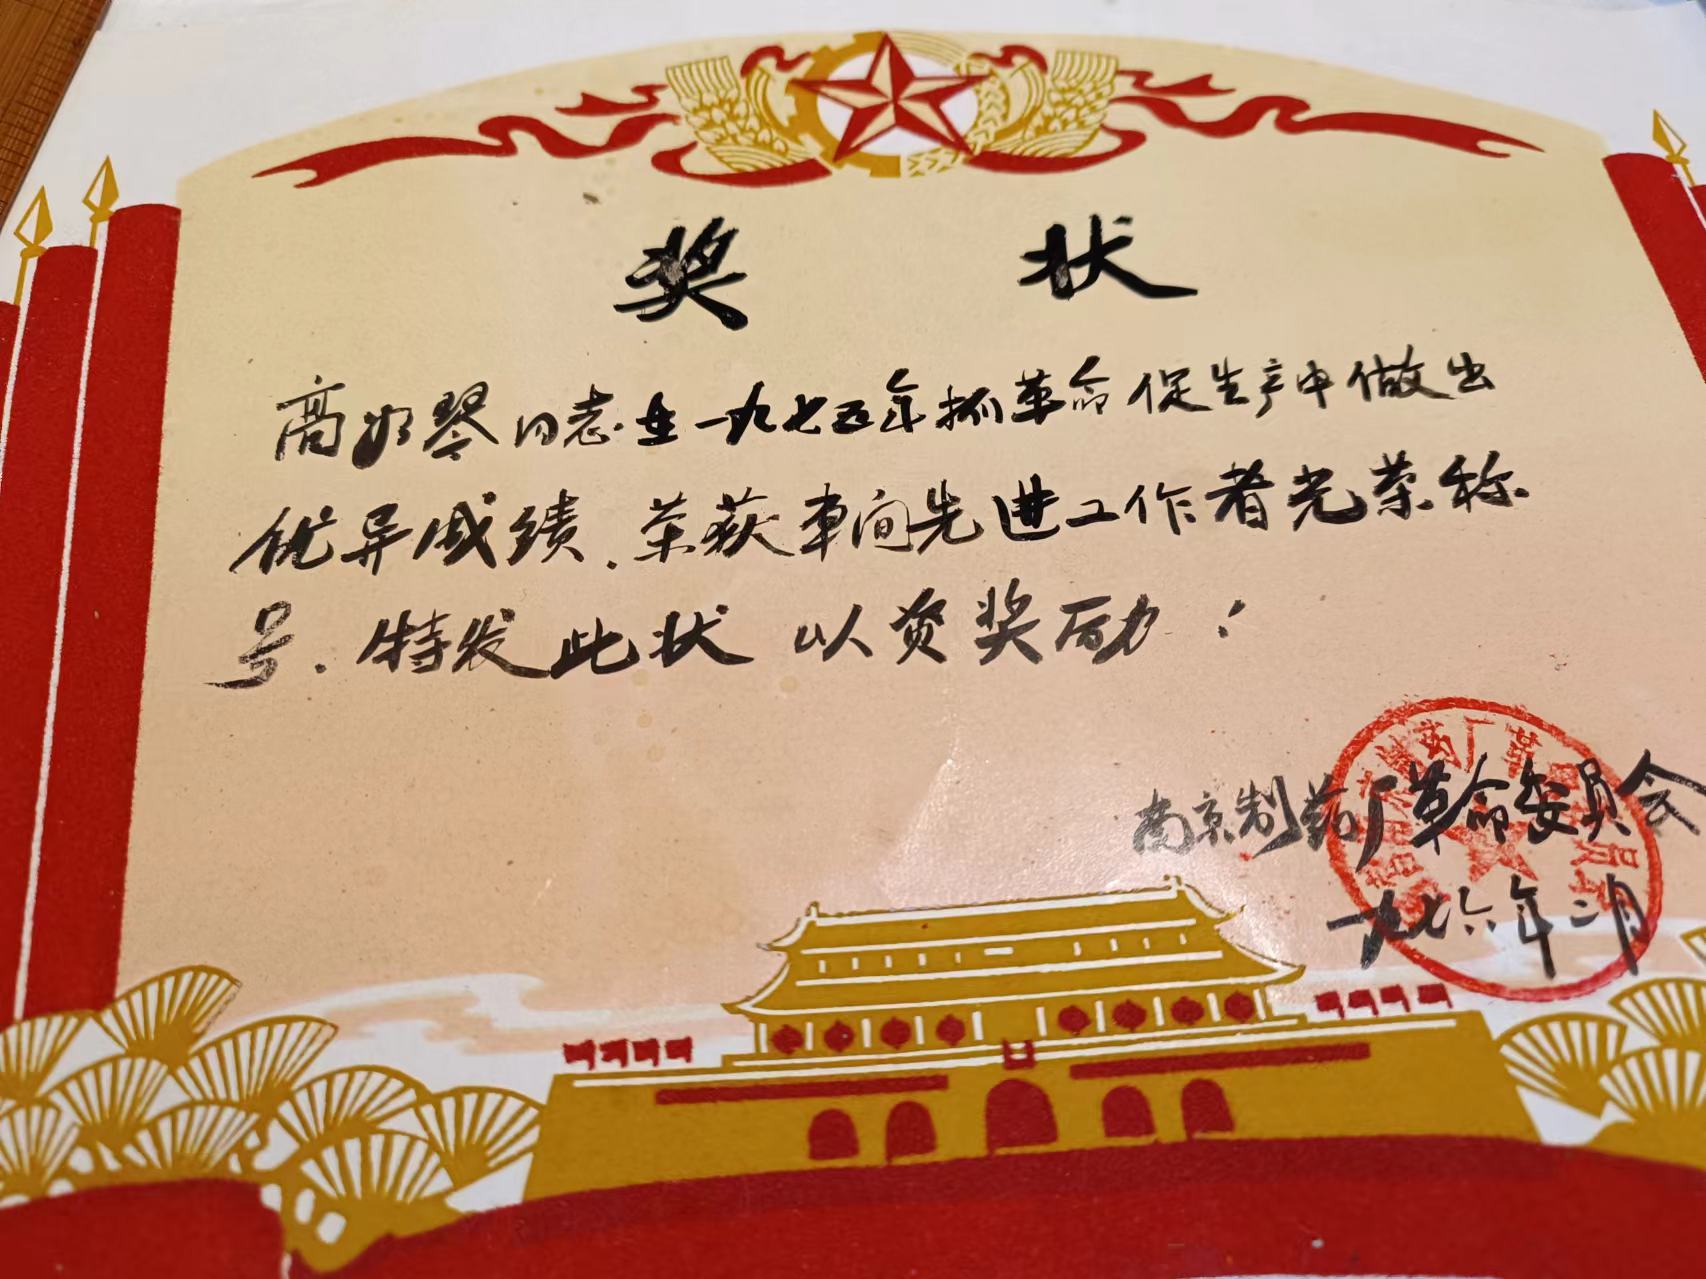 奖状
高如琴同志在一九七五年抓革命促生产中做出
优异成绩.荣获车间先进工作者光荣称
号.特发此状 以资奖励!
南京制药厂革命委员会
一九七六年二月